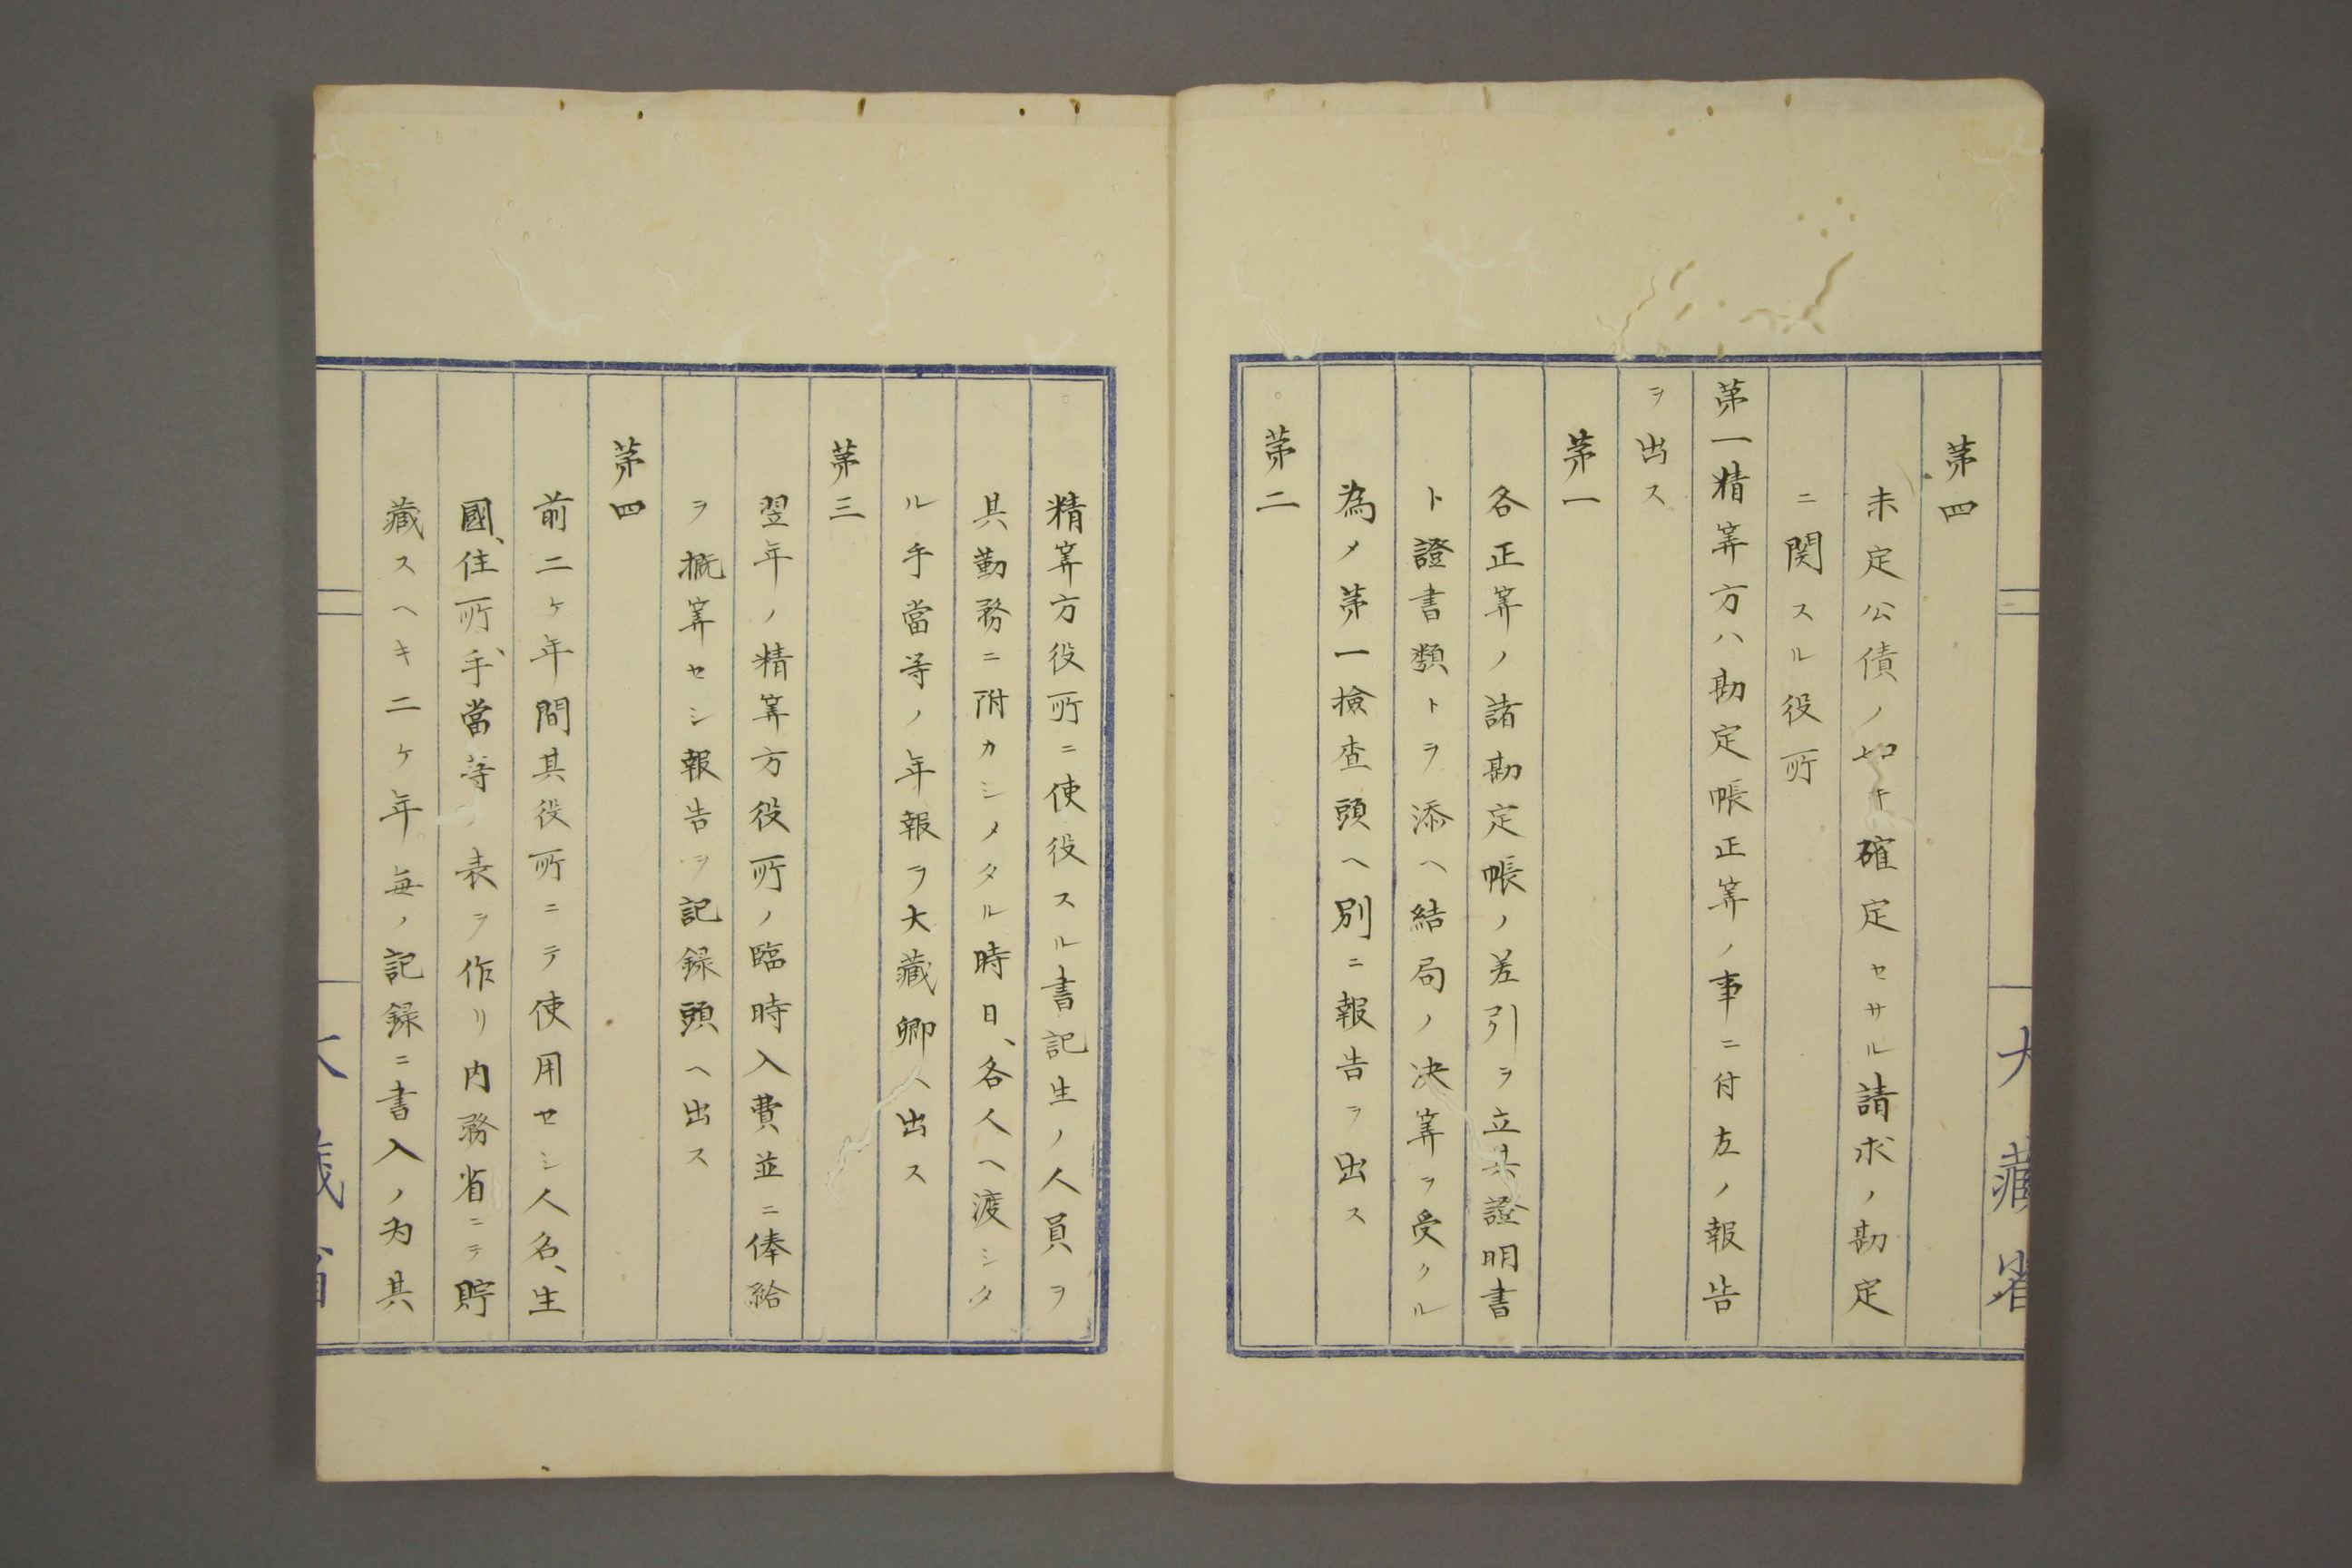 大藏省
第四
未定公債ノ如キ確定セサル請求ノ勘定
ニ関スル役所
第一精筭方ハ勘定帳正筭ノ事ニ付左ノ報告
ヲ出ス
第一
各正筭ノ諸勘定帳ノ差引ヲ立其證明書
ト證書類トヲ添ヘ結局ノ决筭ヲ受クル
為メ第一撿査頭ヘ別ニ報告ヲ出ス
第二
精筭方役所ニ使役スル書記生ノ人員ヲ
其勤務ニ附カシメタル時日、各人ヘ渡シタ
ル手當等ノ年報ヲ大藏卿ヘ出ス
第三
翌年ノ精筭方役所ノ臨時入費並ニ俸給
ヲ概筭セシ報告ヲ記録頭ヘ出ス
第四
前二ケ年間其役所ニテ使用セシ人名、生
國、住所、手當等ノ表ヲ作リ内務省ニテ貯
藏スヘキ二ケ年毎ノ記録ニ書入ノ為其
大藏省